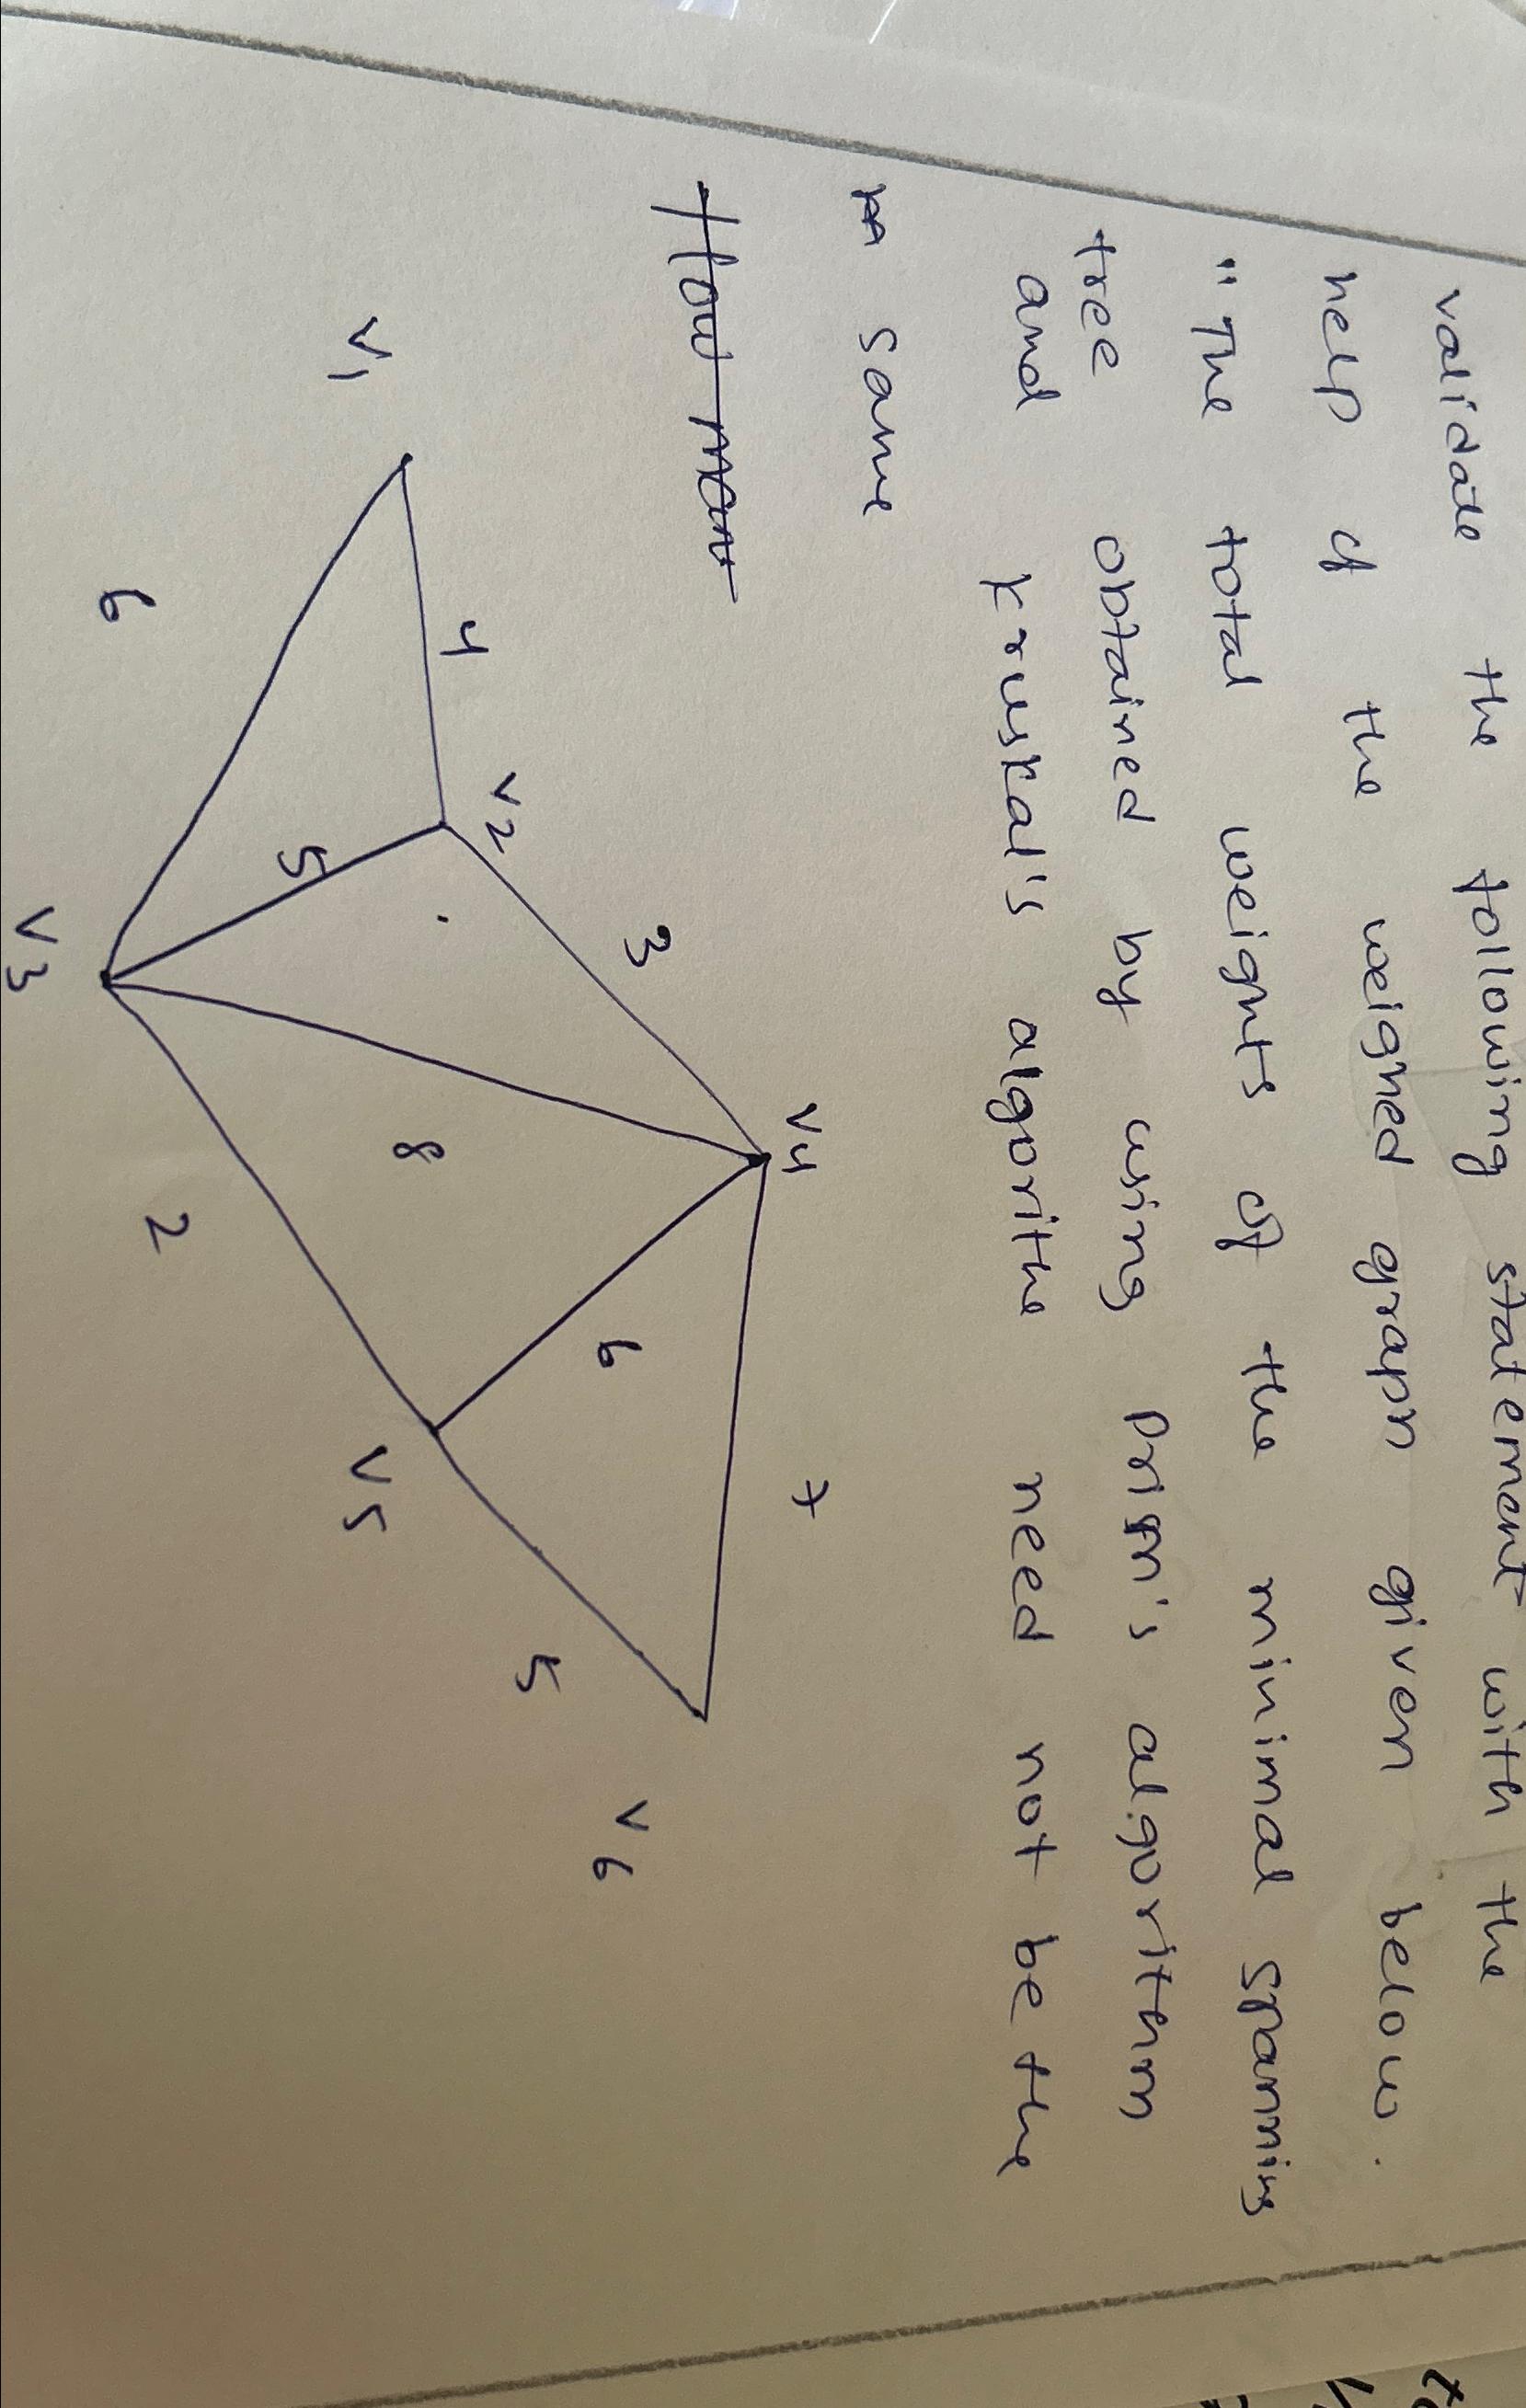 validate the following statement with the
help of the weigned graph given below.
"The total weights of the minimal spanning
tree obtained by using prism's algorithm
and kruskal's algorithe need not be the
same
How man
V1
4
V2
3
V4
7
6
5
8
6
V3
2
V5
5
V6